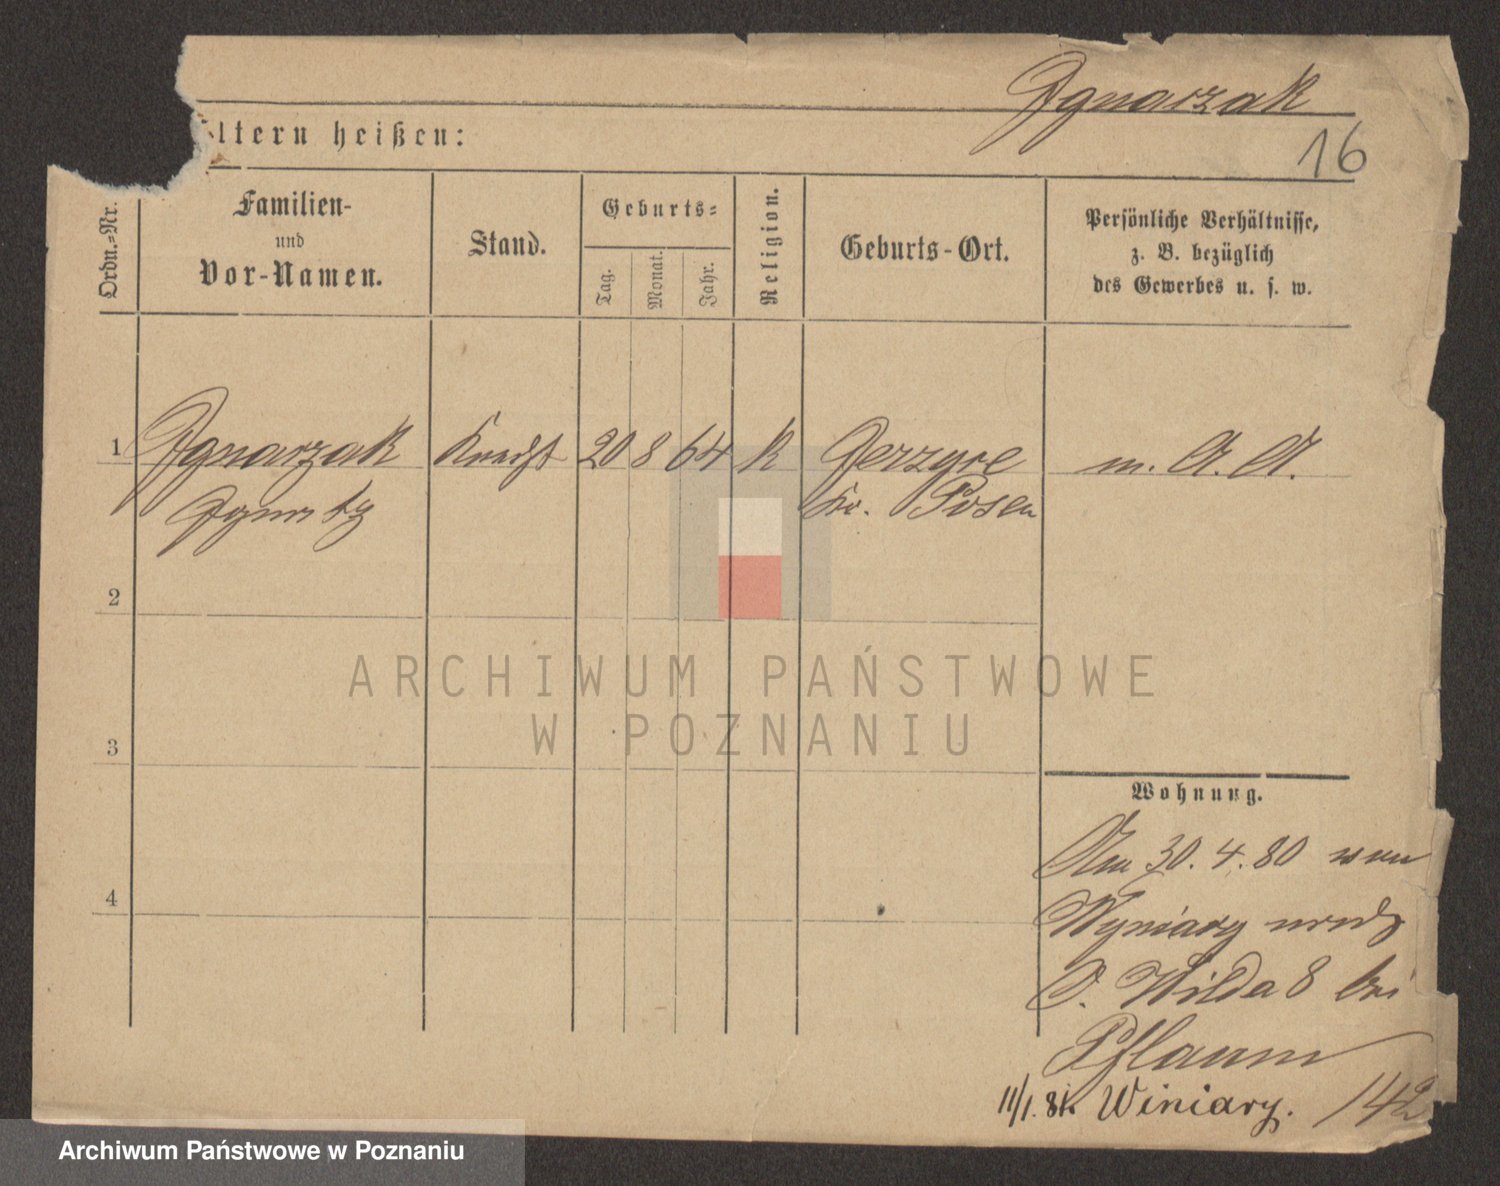 Ignarzak
16
ltern heißen:
Ordn.-Nr.
Familien-
und
Vor-Namen.
Stand.
Geburts-
Tag.
Monat.
Jahr.
Religion.
Geburts-Ort.
Persönliche Verhältnisse,
z. B. bezüglich
des Gewerbes u. s. w.
1 Ignarzak Knecht 20 8 64 K Jerzyce m. A. A.
Ignatz Kr. Posen
2
3
4
ARCHIWUM PAŃSTWOWE
W POZNANIU
Wohnung.
Am 30.4.80 von
Wyniary nach
O. Wilda 8 bei
Pflaum
11/1. 81. Winiary. 142
Archiwum Państwowe w Poznaniu